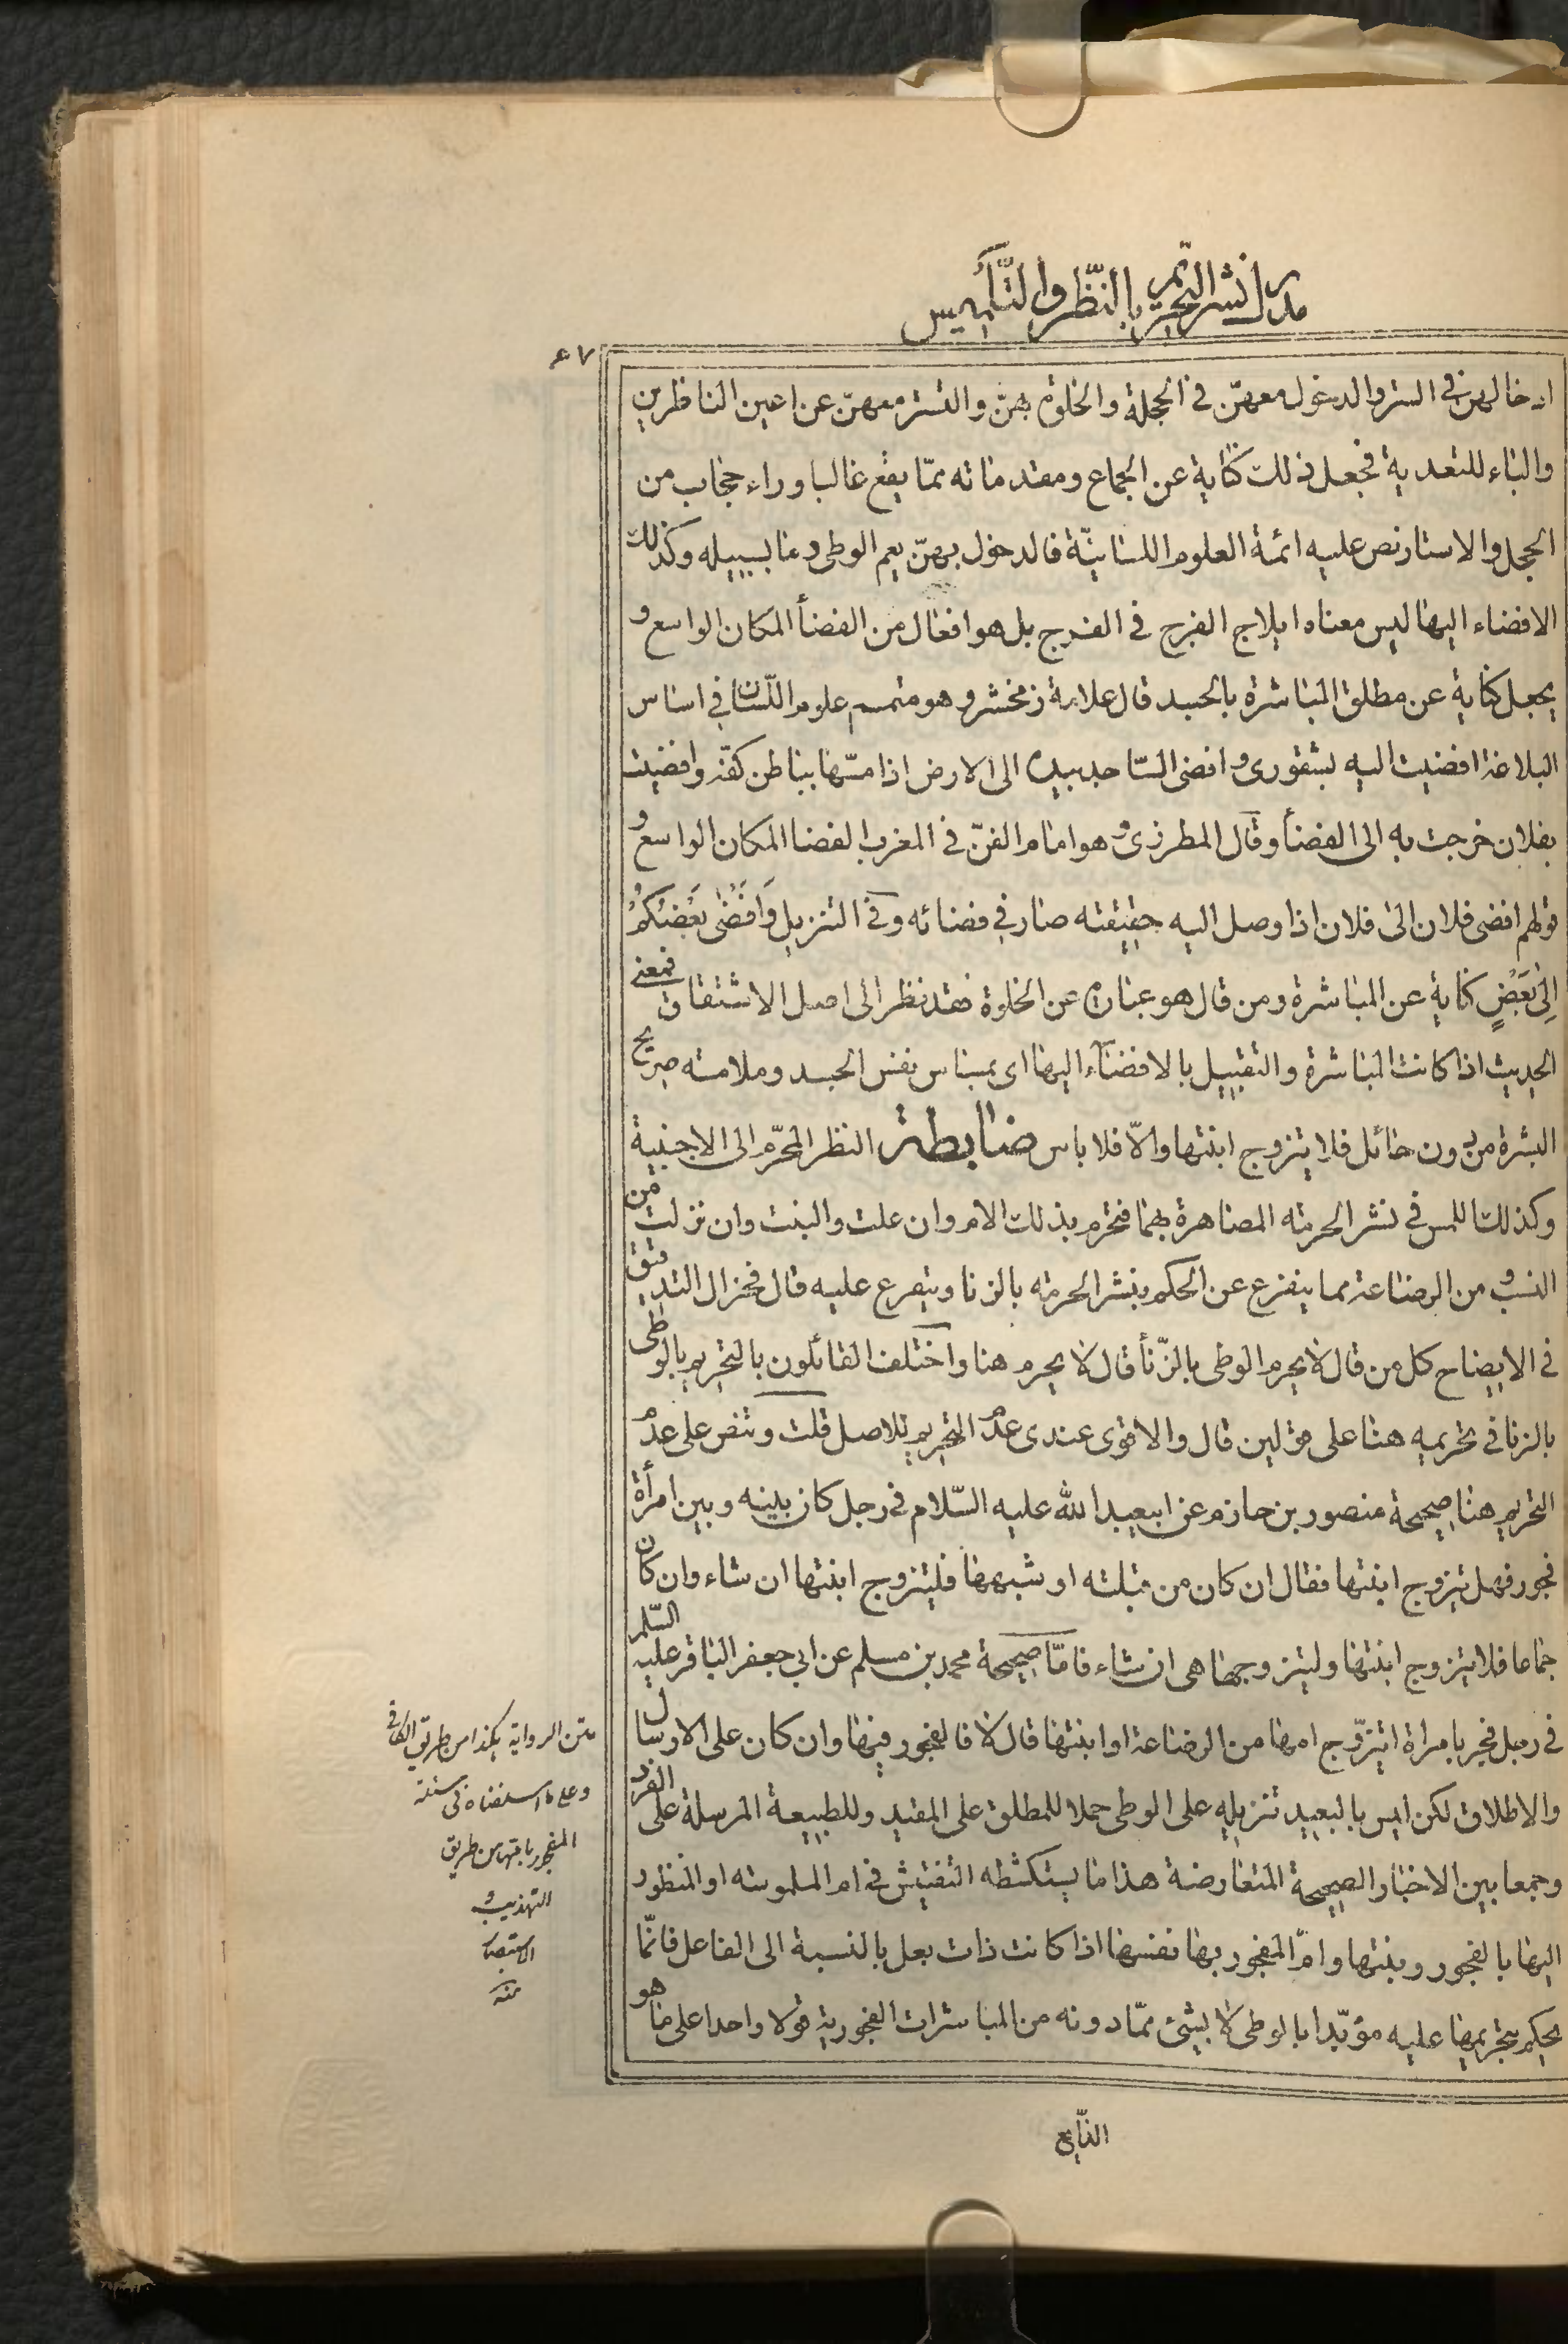 مدرك نشر التحريم بالنظر والتلميس
٤٧
ادخالهن في الستر والدخول معهنّ في الحجلة والخلوة بهنّ والتستر معهنّ عن اعين الناظرين
والباء للتعدية فجعل ذلك كناية عن الجماع ومقدماته ممّا يقع غالبا وراء حجاب من
الحجل والاستار نص عليه ائمة العلوم اللسانيّة فالدخول بهنّ يعم الوطى وما بسبيله وكذلك
الافضاء اليها ليس معناه ايلاج الفرج في الفرج بل هو افعال من الفضأ المكان الواسع و
يجعل كناية عن مطلق المباشرة بالجسد قال علامة زمخشر وهو متمم علوم اللّسان في اساس
البلاغة افضيت اليه بشقورى وافضى السّاجد بيده الى الارض اذا مسّها بباطن كفّه وافضيت
بفلان خرجت به الى الفضأ وقال المطرزى وهو امام الفنّ في المغرب الفضا المكان الواسع و
قولهم افضى فلان الى فلان اذا وصل اليه حقيقته صار في فضائه وفي التنزيل وَاَفْضٰى بَعْضُكُمْ
اِلىٰ بَعْضٍ كناية عن المباشرة ومن قال هو عبارة عن الخلوة فقد نظر الى اصل الاشتقاق فمعنى
الحديث اذا كانت المباشرة والتقبيل بالافضآء اليها اى بمساس نفس الجسد وملامسة صريح
البشرة من دون حائل فلا يتزوج ابنتها والّا فلا باس ضابطة النظر المحرّم الى الاجنبية
وكذلك اللمس في نشر الحرمة المصاهرة بهما فتحرم بذلك الام وان علت والبنت وان نزلت من
النسب و من الرضاعة مما يتفرع عن الحكم بنشر الحرمة بالزنا ويتفرع عليه قال فخر ال التدقيق
في الايضاح كل من قال لا يحرم الوطى بالزّنأ قال لا يحرم هنا واختلف القائلون بالتحريم بالوطى
بالزنا في تحريمه هنا على قولين قال والاقوى عندى عدم التحريم للاصل قلت وتنص على عدم
التحريم هنا صحيحة منصور بن حازم عن ابيعبد الله عليه السّلام في رجل كان بينه وبين امرأة
فجور فهل يتزوج ابنتها فقال ان كان من قبلته او شبهها فليتزوج ابنتها ان شاء وان كان
جماعا فلا يتزوج ابنتها وليتزوجها هى ان شاء فامّا صحيحة محمد بن مسلم عن ابى جعفر الباقر عليه السّلم
في رجل فجر بامراة ايتزوّج امها من الرضاعة او ابنتها قال لا فالفجور فيها وان كان على الارسال
والاطلاق لكن ليس بالبعيد تنزيله على الوطى حملا للمطلق على المقيد وللطبيعة المرسلة على الفرد
وجمعا بين الاخبار الصحيحة المتعارضة هذا ما يستكشطه التفتيش في ام الملموسة او المنظور
اليها بالفجور وبنتها وامّ المفجور بها نفسها اذا كانت ذات بعل بالنسبة الى الفاعل فانّما
يحكم بتحريمها عليه مؤبّدا بالوطى لا بشئ ممّا دونه من المباشرات الفجورية قولا واحدا على ما هو
متن الرواية هكذا من طريق الكافى
وعلى ما
المفجور بامها من طريق
التهذيب و
الاستبصار
منه